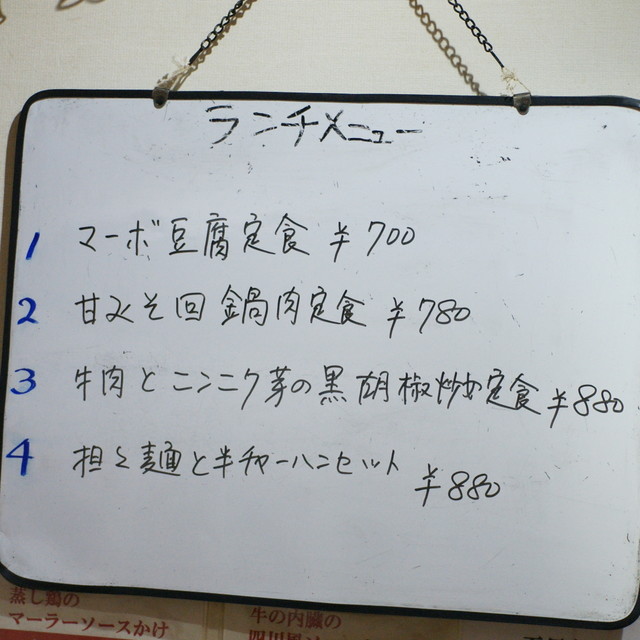 ランチメニュー
1 マーボ豆腐定食 ¥700
2 甘みそ回鍋肉定食 ¥780
3 牛肉とニンニク芽の黒胡椒炒め定食 ¥880
4 担々麺と半チャーハンセット ¥880
蒸し鶏の
マーラーソースかけ
牛の内臓の